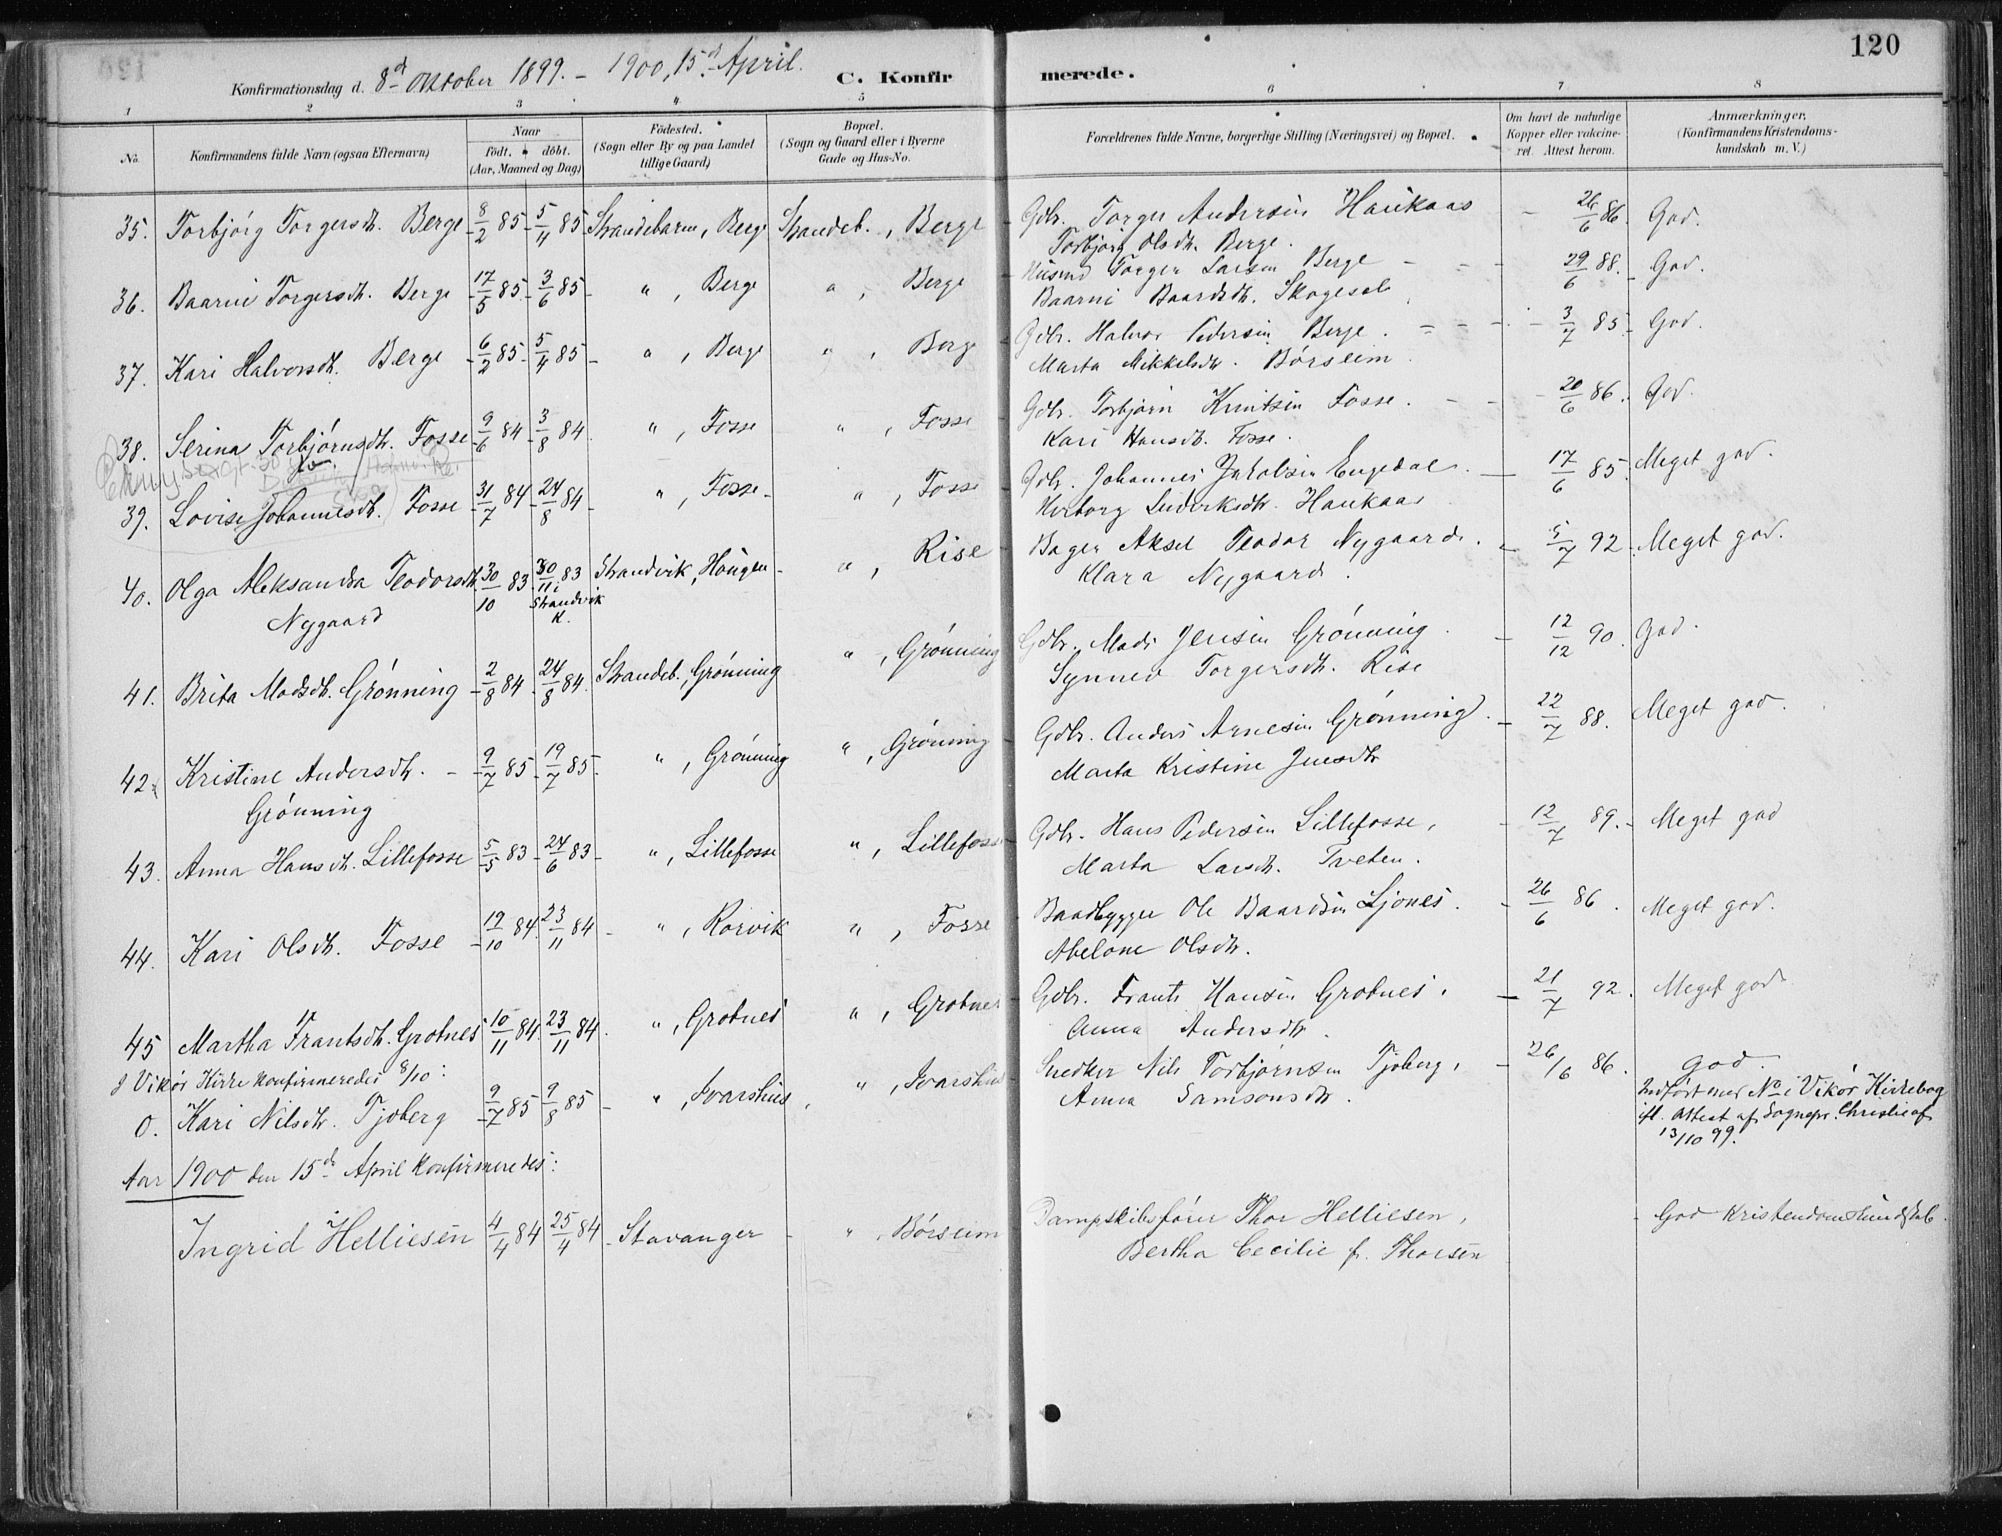 120
Konfirmationsdag d. 8d Oktober 1899. – 1900, 15d April.
C. Konfirmerede.
1 2 3 4 5 6 7 8
No.
Konfirmandens fulde Navn (ogsaa Efternavn)
Naar
födt. döbt.
(Aar, Maaned og Dag)
Födested.
(Sogn eller By og paa Landet
tillige Gaard)
Bopæl.
(Sogn og Gaard eller i Byerne
Gade og Hus-No.
Forældrenes fulde Navne, borgerlige Stilling (Næringsvei) og Bopæl.
Om havt de naturlige
Kopper eller vakcine-
ret. Attest herom.
Anmærkninger.
(Konfirmandens Kristendoms-
kundskab m. V.)
35. Torbjørg Torgersdt. Berge 8/2 85 5/4 85 Strandebarm, Berge Strandeb., Berge Gbr. Torger Andersen Haukaas 26/6 86. God.
Torbjørg Olsdt. Berge.
36. Baarni Torgersdt. Berge 17/5 85 3/6 85 " , Berge " , Berge Husmd Torger Larsen Berge 29/6 88. God.
Baarni Baardsdt. Skogeseb
37. Kari Halvorsdt. Berge 6/2 85 5/4 85 " , Berge " , Berge Gbr. Halvor Pedersen Berge. 3/7 85. God.
Marta Mikkelsdtr. Børseim
38. Serina Torbjørnsdt. Fosse 9/6 84 3/8 84 " , Fosse " , Fosse Gbr. Torbjørn Knutsen Fosse. 20/6 86. God.
Kari Hansdt. Fosse.
39. Lovise Johannesdt. Fosse 31/7 84 24/8 84 " , Fosse " , Fosse Gbr. Johannes Jakobsen Engedal 17/6 85. Meget god.
Herborg Luderksdtr. Haukaas
40. Olga Aleksandra Teodorsdt. 30/10 83 30/11 83 i Strandvik K. Strandvik, Haugen " , Rise Bager Aksel Teodor Nygaard. 5/7 92. Meget god.
Nygaard Klara Nygaard.
41. Brita Madsdt. Grønning 2/8 84 24/8 84. Strandeb., Grønning " , Grønning Gbr. Mads Jensen Grønning. 12/12 90. God.
Synnev Torgersdt. Rise
42. Kristine Andersdtr. 9/7 85 19/7 85. " , Grønning " , Grønning Gbr. Anders Arnesen Grønning. 22/7 88. Meget god.
Grønning Marta Kristine Jensdtr
43. Anna Hansdt. Lillefosse 5/5 83 24/6 83 " , Lillefosse " , Lillefosse Gbr. Hans Pedersen Lillefosse, 12/7 89. Meget god
Marta Larsdt. Tveten.
44. Kari Olsdt. Fosse 19/10 84 23/11 84 " , Rørvik " , Fosse Baadbygger Ole Baardsen Ljones. 26/6 86. Meget god.
Abelone Olsdtr.
45 Martha Frantsdt. Grotnes 10/11 84. 23/11 84. " , Grotnes " , Grotnes Gbr. Frants Hansen Grotnes. 21/7 92. Meget god
Anna Andersdtr.
I Vikør Kirke konfirmeredes 8/10:
0. Kari Nilsdtr. Tjoberg 9/7 85 9/8 85 " , Ivarshus " , Ivarshus Snedker Nils Torbjørnsen Tjoberg, 26/6 86. God.
Anna Samsonsdtr. Indført med No i Vikør Kirkebog
ifl. Attest af Sognepr. Christie af
13/10 99.
Aar 1900 den 15de April konfirmeredes:
Ingrid Helliesen 4/4 84 25/4 84 Stavanger " , Børseim Dampskibsfører Thor Helliesen, God Kristendomskundskab.
Bertha Cecilie f. Thorsen